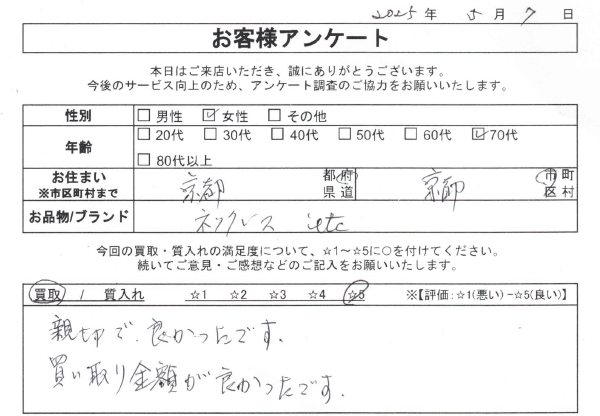 2025年 5月 7日
お客様アンケート
本日はご来店いただき、誠にありがとうございます。
今後のサービス向上のため、アンケート調査のご協力をお願いいたします。
性別 □ 男性 ☑ 女性 □ その他
年齢 □ 20代 □ 30代 □ 40代 □ 50代 □ 60代 ☑ 70代
□ 80代以上
お住まい ※市区町村まで 京都 都府県道 京都 市町区村
お品物/ブランド ネックレス etc
今回の買取・質入れの満足度について、☆1～☆5に○を付けてください。
続いてご意見・ご感想などのご記入をお願いいたします。
買取 / 質入れ ☆1 ☆2 ☆3 ☆4 ☆5 ※【評価:☆1(悪い)−☆5(良い)】
親切で、良かったです。
買い取り金額が良かったです。